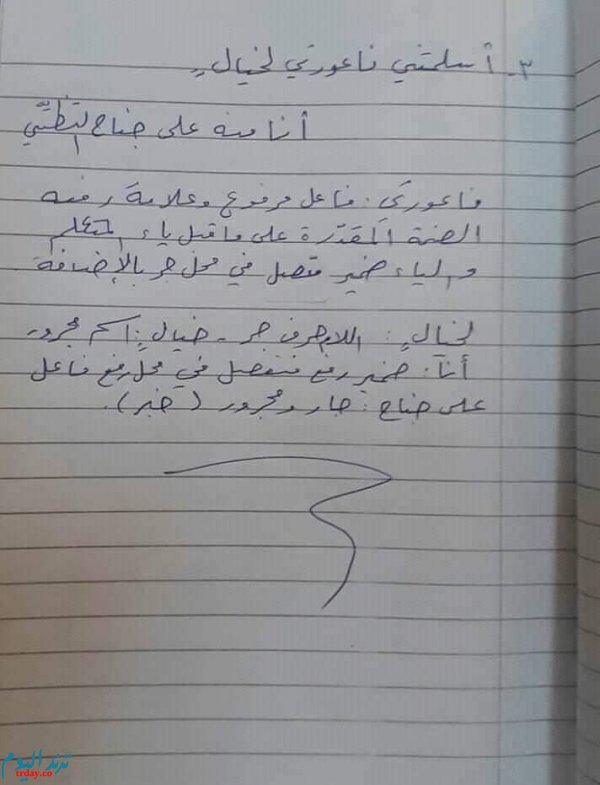 ٣- أسلمتني ناعورتي لخيالٍ
أنا منه على جناح التظنّي
ناعورتي: فاعل مرفوع وعلامة رفعه
الضمة المقدّرة على ما قبل ياء المتكلم
والياء ضمير متصل في محل جر بالإضافة
لخيالٍ: اللام حرف جر - خيالٍ: اسم مجرور
أنا: ضمير رفع منفصل في محل رفع فاعل
على جناح: جار ومجرور (خبر).
ترند اليوم
trday.co